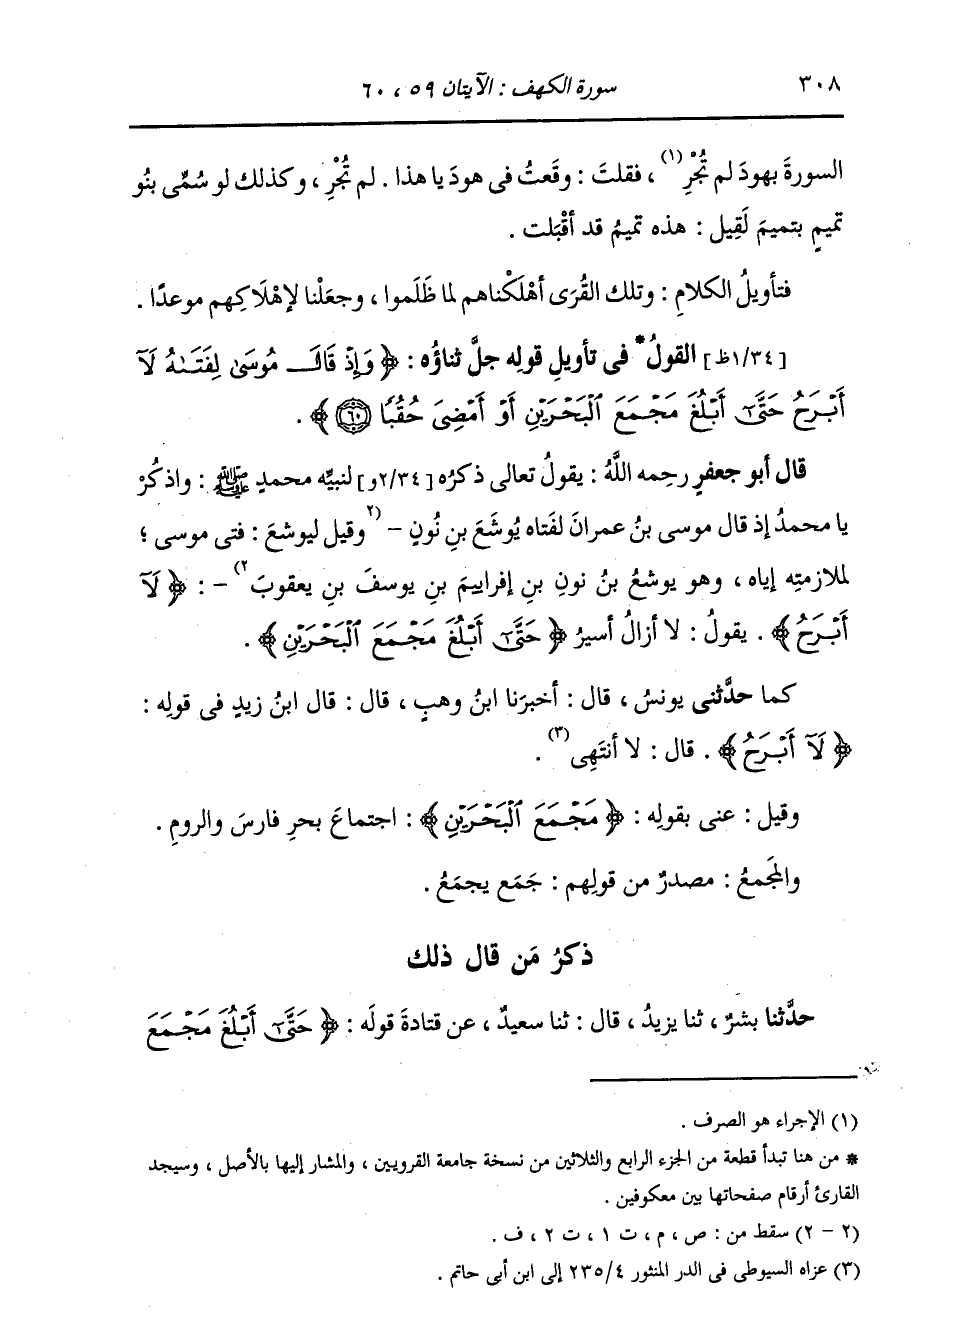 ٣٠٨ سورة الكهف : الآيتان ٥٩ ، ٦٠
السورةَ بهودَ لم تُجْرِ(١) ، فقلتَ : وقَعتُ فى هودَ يا هذا . لم تُجْرِ ، وكذلك لو سُمِّى بنُو
تميمٍ بتميمَ لَقِيل : هذه تميمُ قد أقْبَلت .
فتأويلُ الكلامِ : وتلك القُرَى أهْلَكْناهم لما ظَلَموا ، وجعَلْنا لإهْلَاكِهم موعدًا .
[١/٣٤ظ] القولُ* فى تأويلِ قولِه جلَّ ثناؤُه : ﴿ وَإِذْ قَالَ مُوسَىٰ لِفَتَىٰهُ لَآ
أَبْرَحُ حَتَّىٰٓ أَبْلُغَ مَجْمَعَ ٱلْبَحْرَيْنِ أَوْ أَمْضِىَ حُقُبًا ٦٠ ﴾ .
قال أبو جعفرٍ رحِمه اللَّهُ : يقولُ تعالى ذكرُه [٢/٣٤و] لنبيِّه محمدٍ ﷺ : واذكُرْ
يا محمدُ إذ قال موسى بنُ عمرانَ لفَتاه يُوشَعَ بنِ نُونٍ - (٢وقيل ليوشعَ : فتى موسى ؛
لملازمتِه إياه ، وهو يوشعُ بنُ نونِ بنِ إفراييمَ بنِ يوسفَ بنِ يعقوبَ٢) - : ﴿ لَآ
أَبْرَحُ ﴾ . يقولُ : لا أزالُ أسيرُ ﴿ حَتَّىٰٓ أَبْلُغَ مَجْمَعَ ٱلْبَحْرَيْنِ ﴾ .
كما حدَّثنى يونسُ ، قال : أخبرَنا ابنُ وهبٍ ، قال : قال ابنُ زيدٍ فى قولِه :
﴿ لَآ أَبْرَحُ ﴾ . قال : لا أنتَهِى(٣) .
وقيل : عنى بقولِه : ﴿ مَجْمَعَ ٱلْبَحْرَيْنِ ﴾ : اجتماعَ بحرِ فارسَ والرومِ .
والمجمَعُ : مصدرٌ من قولِهم : جَمَع يجمَعُ .
ذكرُ مَن قال ذلك
حدَّثنا بشرٌ ، ثنا يزيدُ ، قال : ثنا سعيدٌ ، عن قتادةَ قولَه : ﴿ حَتَّىٰٓ أَبْلُغَ مَجْمَعَ
(١) الإجراء هو الصرف .
* من هنا تبدأ قطعة من الجزء الرابع والثلاثين من نسخة جامعة القرويين ، والمشار إليها بالأصل ، وسيجد
القارئ أرقام صفحاتها بين معكوفين .
(٢ - ٢) سقط من : ص ، م ، ت ١ ، ت ٢ ، ف .
(٣) عزاه السيوطى فى الدر المنثور ٢٣٥/٤ إلى ابن أبى حاتم .